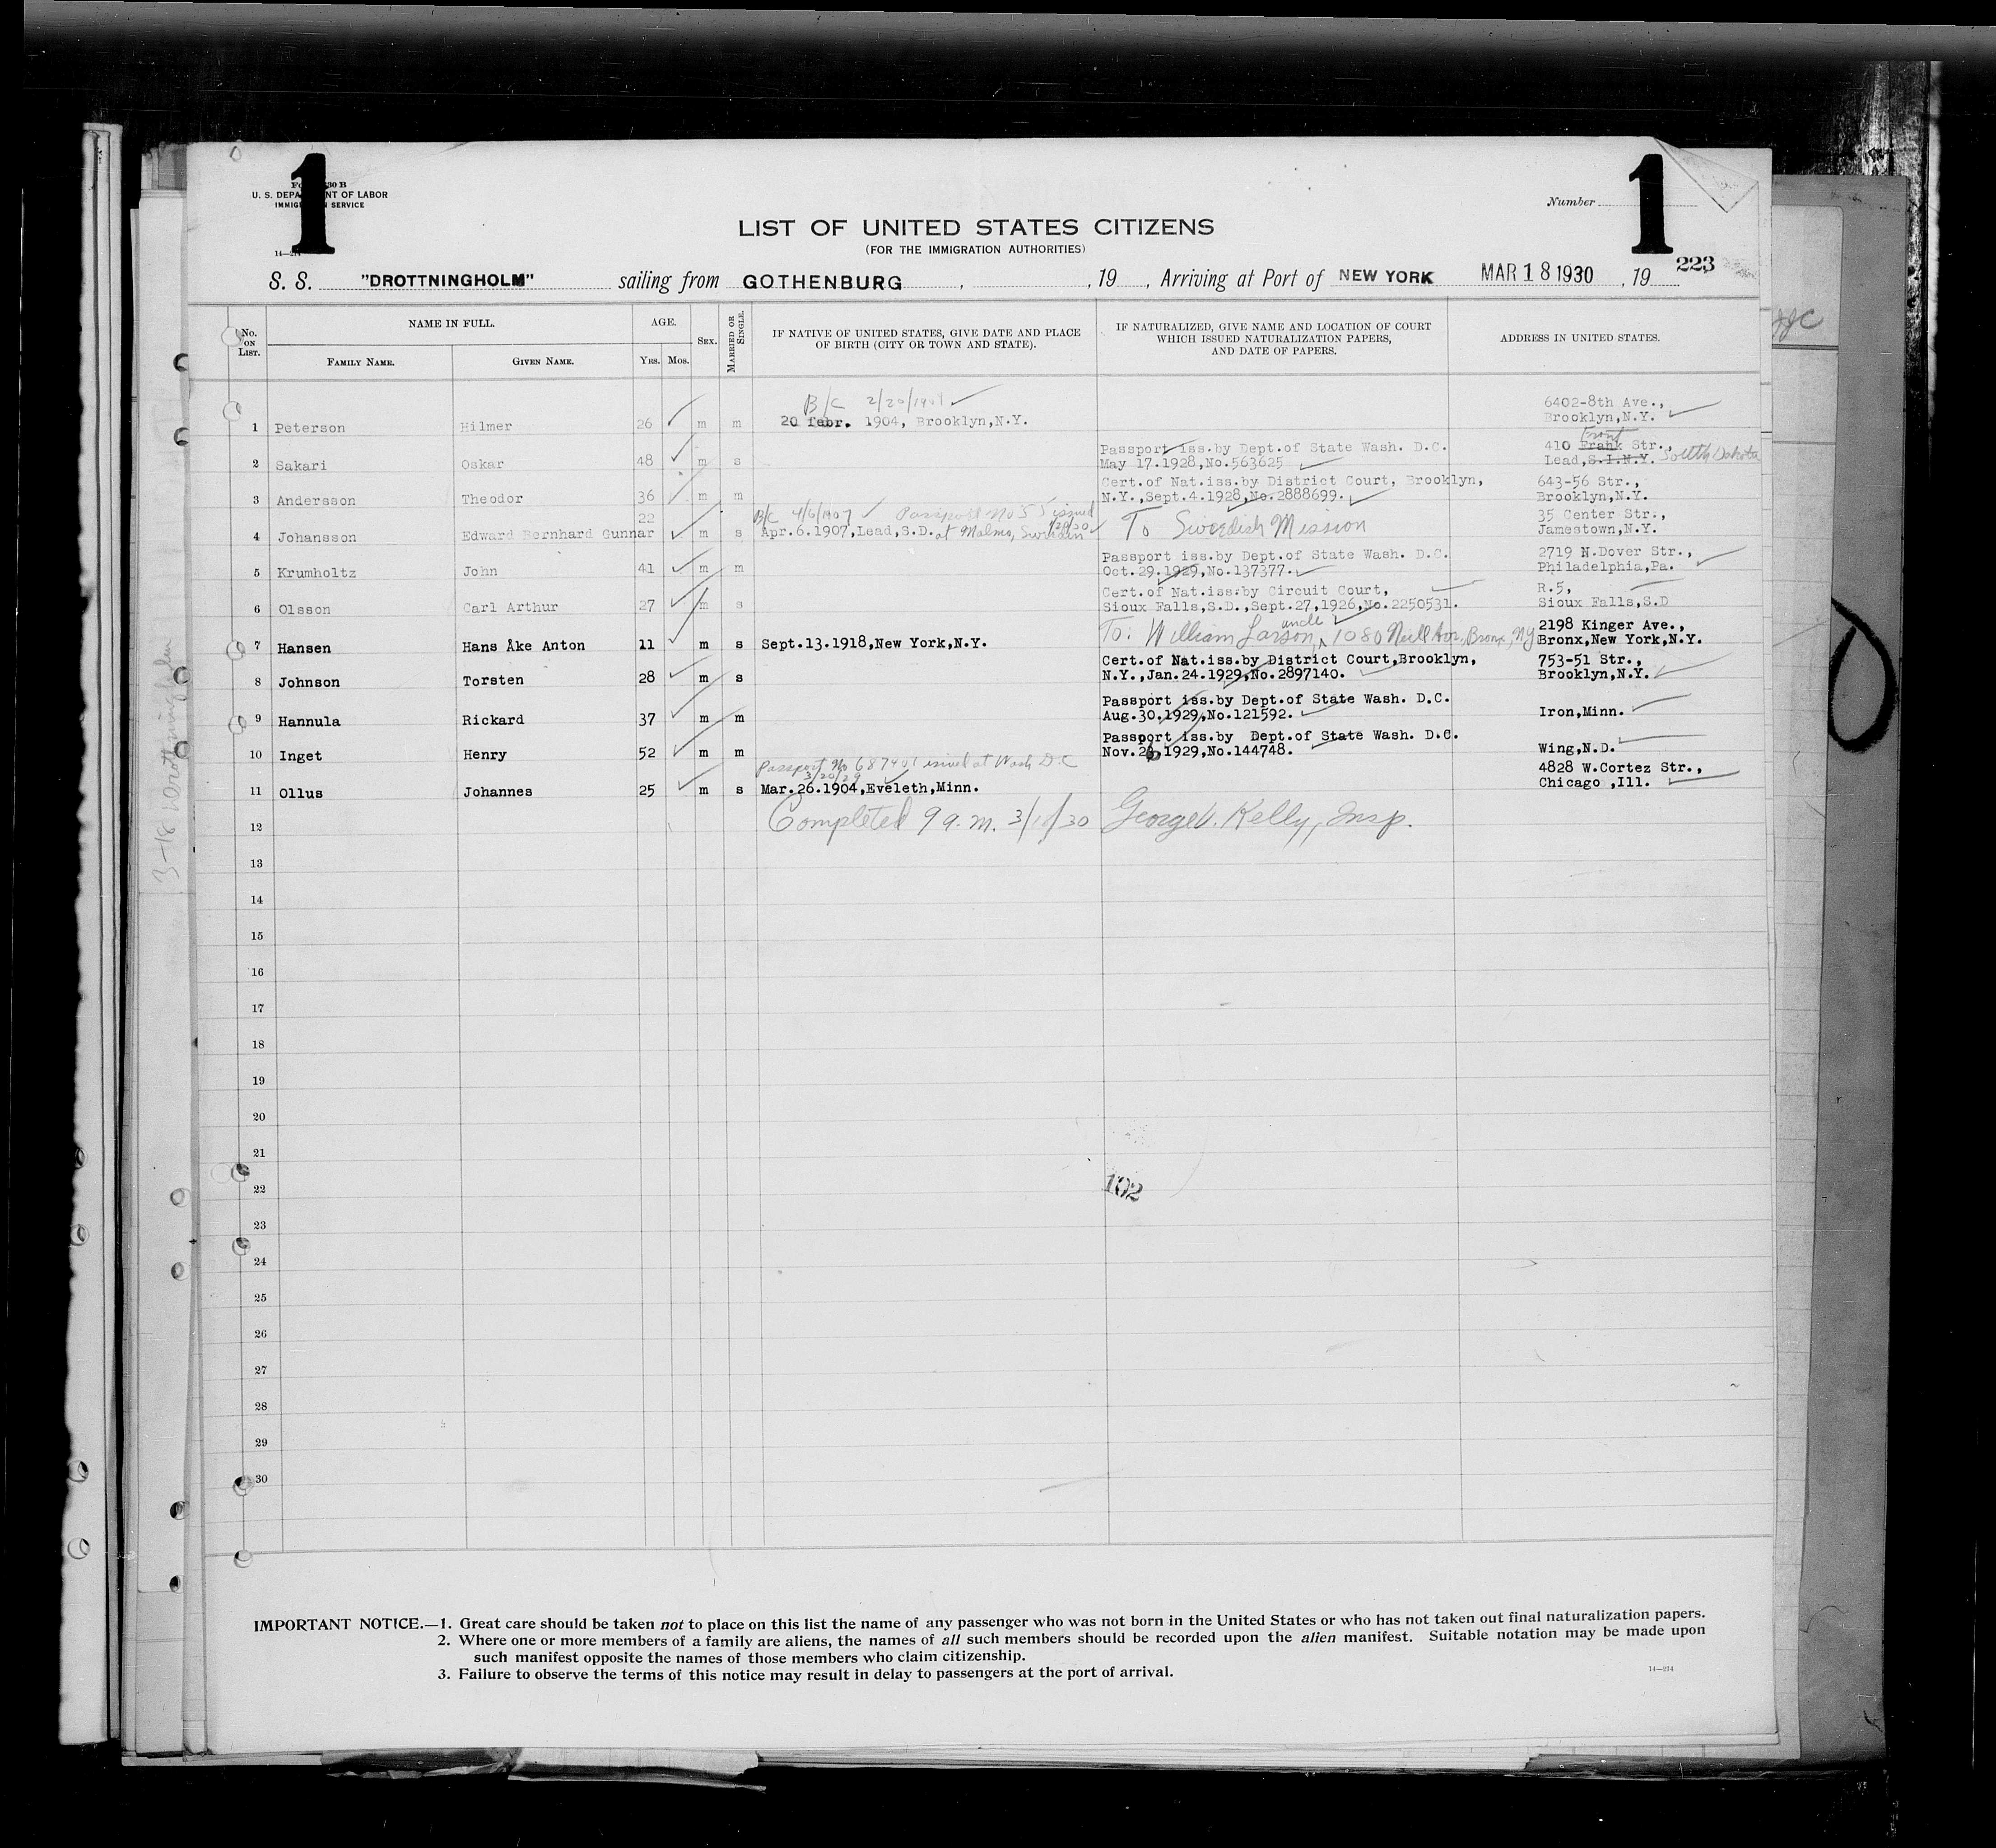 1 1
U. S. DEPARTMENT OF LABOR
IMMIGRATION SERVICE
Number
LIST OF UNITED STATES CITIZENS
(FOR THE IMMIGRATION AUTHORITIES)
S. S. "DROTTNINGHOLM" sailing from GOTHENBURG , , 19 , Arriving at Port of NEW YORK MAR 18 1930 , 19 223
No. ON LIST. NAME IN FULL. FAMILY NAME. GIVEN NAME. AGE. YRS. MOS. SEX. MARRIED OR SINGLE. IF NATIVE OF UNITED STATES, GIVE DATE AND PLACE OF BIRTH (CITY OR TOWN AND STATE). IF NATURALIZED, GIVE NAME AND LOCATION OF COURT WHICH ISSUED NATURALIZATION PAPERS, AND DATE OF PAPERS. ADDRESS IN UNITED STATES.
B/C 2/20/1904 6402-8th Ave.,
1 Peterson Hilmer 26 m m 20 febr. 1904, Brooklyn,N.Y. Brooklyn,N.Y.
Passport iss.by Dept.of State Wash. D.C. 410 Frank Front Str.,
2 Sakari Oskar 48 m s May 17.1928,No.563625 Lead,S.I.N.Y. South Dakota
Cert.of Nat.iss.by District Court, Brooklyn, 643-56 Str.,
3 Andersson Theodor 36 m m N.Y.,Sept.4.1928,No.2888699. Brooklyn,N.Y.
22 B/C 4/6/1907 Passport No 55 issued 35 Center Str.,
4 Johansson Edward Bernhard Gunnar m s Apr.6.1907,Lead,S.D. at Malmo, Sweden To Swedish Mission Jamestown,N.Y.
Passport iss.by Dept.of State Wash. D.C. 2719 N.Dover Str.,
5 Krumholtz John 41 m m Oct.29.1929,No.137377. Philadelphia,Pa.
Cert.of Nat.iss.by Circuit Court, R.5,
6 Olsson Carl Arthur 27 m s Sioux Falls,S.D.,Sept.27,1926,No.2250531. Sioux Falls,S.D
To: William Larson, uncle 1080 Neill Ave, Bronx, NY 2198 Kinger Ave.,
7 Hansen Hans Åke Anton 11 m s Sept.13.1918,New York,N.Y. Bronx,New York,N.Y.
Cert.of Nat.iss.by District Court,Brooklyn, 753-51 Str.,
8 Johnson Torsten 28 m s N.Y.,Jan.24.1929,No.2897140. Brooklyn,N.Y.
Passport iss.by Dept.of State Wash. D.C.
9 Hannula Rickard 37 m m Aug.30.1929,No.121592. Iron,Minn.
Passport iss.by Dept.of State Wash. D.C.
10 Inget Henry 52 m m Nov. 1929,No.144748. Wing,N.D.
Passport No 687401 issued at Wash D.C 3/20/29 4828 W.Cortez Str.,
11 Ollus Johannes 25 m s Mar.26.1904,Eveleth,Minn. Chicago ,Ill.
12 Completed 9 a.m. 3/18/30 George V. Kelly, Insp.
13
14
15
16
17
18
19
20
21
22 102
23
24
25
26
27
28
29
30
IMPORTANT NOTICE.—1. Great care should be taken not to place on this list the name of any passenger who was not born in the United States or who has not taken out final naturalization papers.
2. Where one or more members of a family are aliens, the names of all such members should be recorded upon the alien manifest. Suitable notation may be made upon
such manifest opposite the names of those members who claim citizenship.
3. Failure to observe the terms of this notice may result in delay to passengers at the port of arrival.
14—214
3-18 Drottningholm